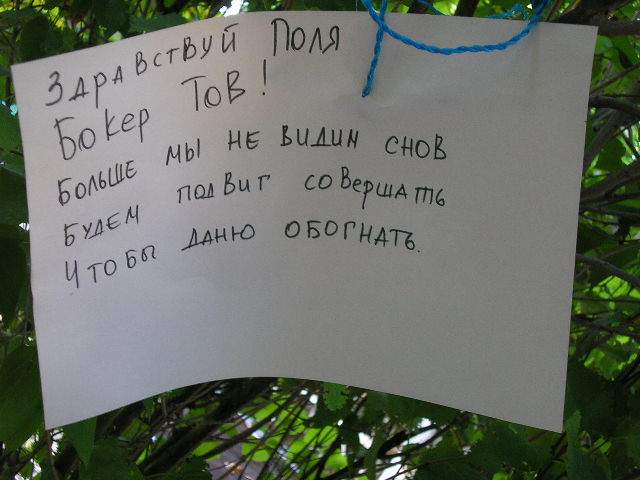 Здравствуй Поля
Бокер Тов!
Больше мы не видин снов
Будем подвиг совершать
Чтобы Даню обогнать.